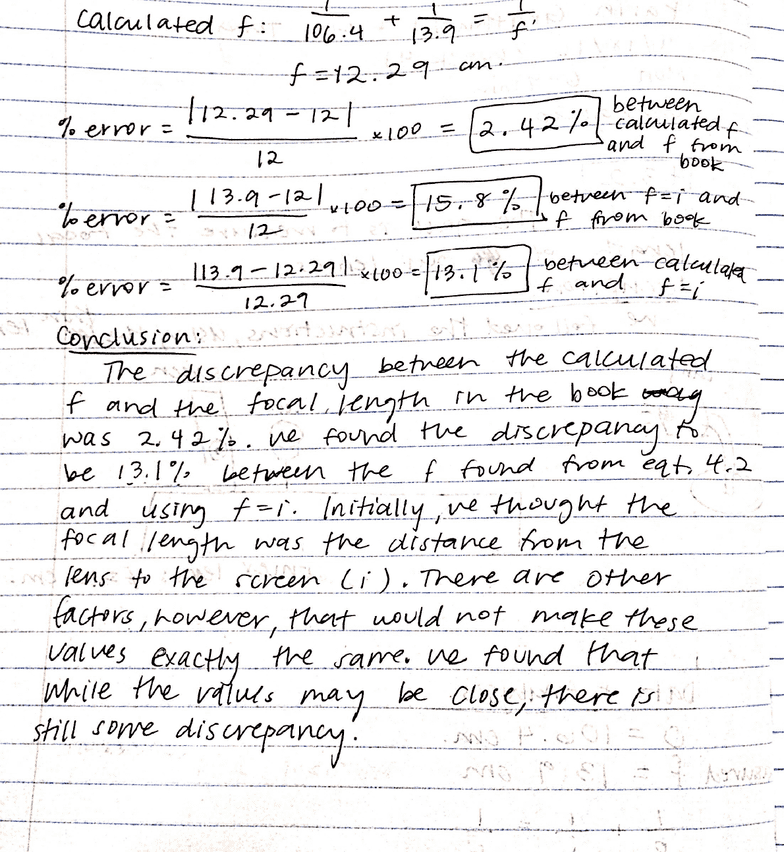 Calculated f: 1/106.4 + 1/13.9 = 1/f
f = 12.29 cm.
% error = |12.29 - 12| / 12 x100 = 2.42% between calculated f and f from book
% error = |13.9 - 12| / 12 x100 = 15.8% between f=i and f from book
% error = |13.9 - 12.29| / 12.29 x100 = 13.1% between calculated f and f=i
Conclusion:
The discrepancy between the calculated
f and the focal length in the book
was 2.42%. We found the discrepancy to
be 13.1% between the f found from eqt. 4.2
and using f=i. Initially, we thought the
focal length was the distance from the
lens to the screen (i). There are other
factors, however, that would not make these
values exactly the same. We found that
while the values may be close, there is
still some discrepancy.